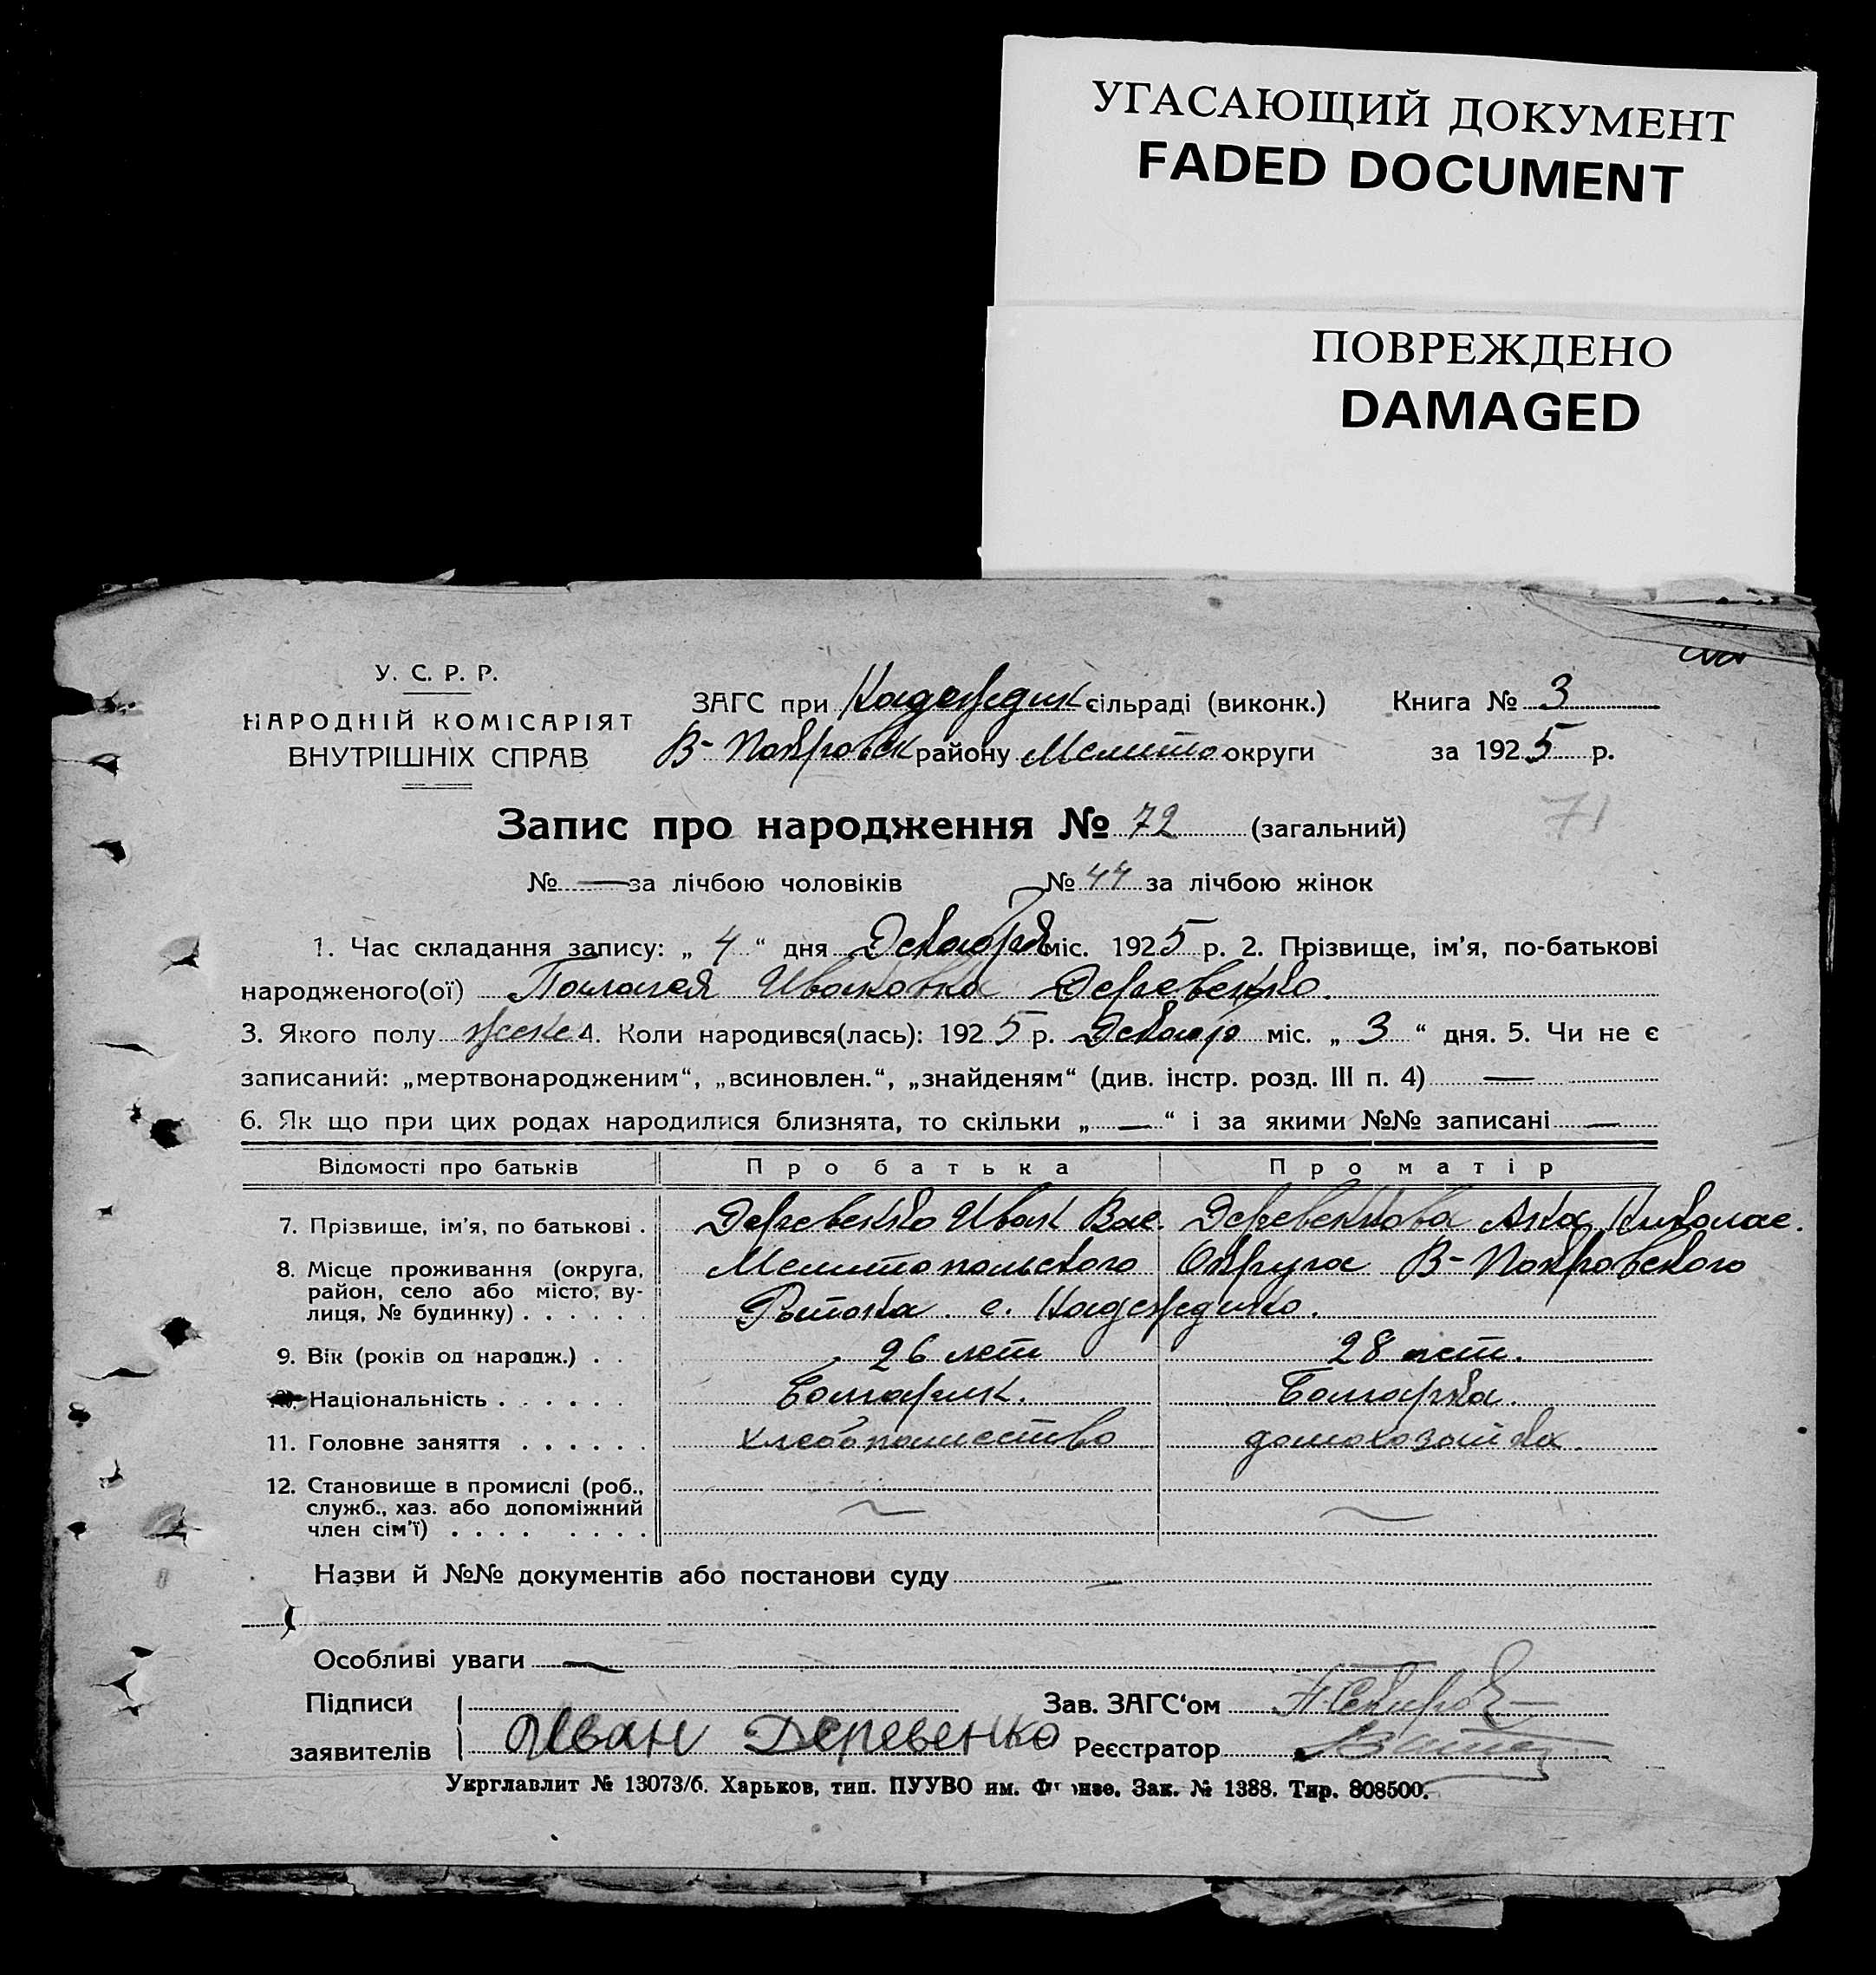 УГАСАЮЩИЙ ДОКУМЕНТ
FADED DOCUMENT
ПОВРЕЖДЕНО
DAMAGED
У. С. Р. Р.
НАРОДНІЙ КОМІСАРІЯТ
ВНУТРІШНІХ СПРАВ
ЗАГС при Надеждин сільраді (виконк.) Книга № 3
В-Покровск району Мелито округи за 1925 р.
Запис про народження № 72 (загальний)
71
№ — за лічбою чоловіків № 44 за лічбою жінок
1. Час складання запису: „ 4 “ дня Декабря міс. 1925 р. 2. Прізвище, ім’я, по-батькові
народженого(ої) Полагея Ивановна Деревенко.
3. Якого полу женс 4. Коли народився(лась): 1925 р. Декабр міс. „ 3 “ дня. 5. Чи не є
записаний: „мертвонародженим“, „всиновлен.“, „знайденям“ (див. інстр. розд. III п. 4) —
6. Як що при цих родах народилися близнята, то скільки „ — “ і за якими №№ записані —
Відомості про батьків Про батька Про матір
7. Прізвище, ім’я, по батькові . Деревенко Иван Вас. Деревенкова Анна Николае.
8. Місце проживання (округа, район, село або місто, вулиця, № будинку) . . . . . . Мелитопольского Округа В-Покровского
Ратона с. Надеждино.
9. Вік (років од народж.) . . 26 лет 28 лет.
Національність . . . . . . Болгарин. Болгарка.
11. Головне заняття . . . . . . хлебопашество домохозайка.
12. Становище в промислі (роб., служб., хаз. або допоміжний член сім’ї) . . . . . . . . ~ ~
Назви й №№ документів або постанови суду —
Особливі уваги —
Підписи Зав. ЗАГС‘ом
заявителів Иван Деревенко Реєстратор
Укрглавлит № 13073/б. Харьков, тип. ПУУВО им. Фрунзе. Зак. № 1388. Тир. 808500.